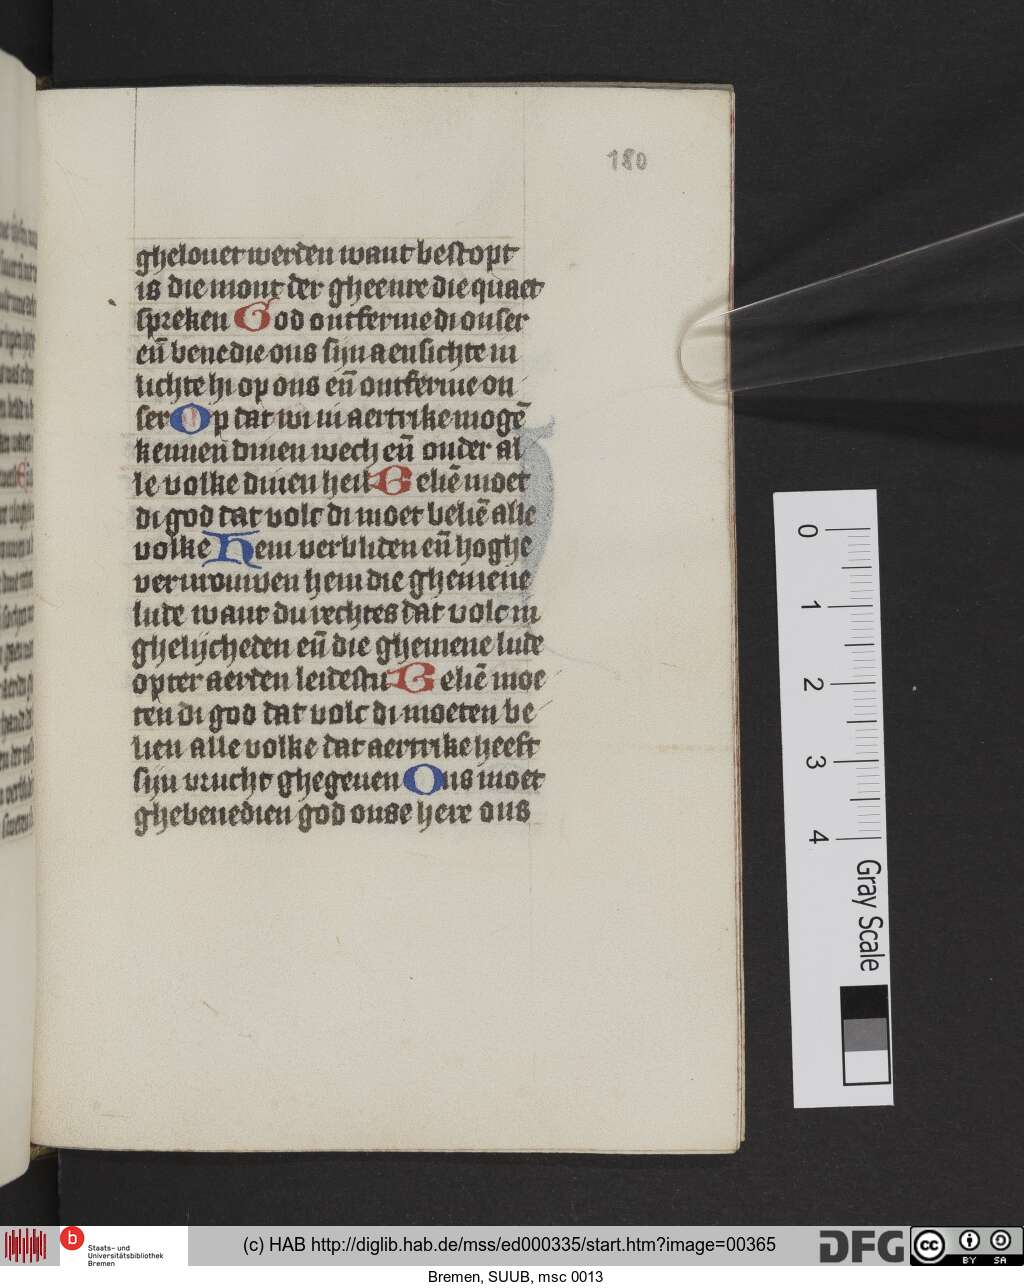 180
ghelouet werden want bestopt
is die mont der gheenre die quaet
spreken God ontferme di onser
eñ benedie ons sijn aensichte in
lichte hi op ons eñ ontferme on
ser Op dat wi in aertrike mogē
kennen dinen wech eñ onder al
le volke dinen heil Beliē moet
di god dat volc di moet beliē alle
volke Hem verbliden eñ hoghe
verwouwen hem die ghemene
lude want du rechtes dat volc in
ghelijcheden eñ die ghemene lude
opter aerden leidestu Beliē moe
ten di god dat volc di moeten be
lien alle volke dat aertrike heeft
sijn vrucht ghegeuen Ons moet
ghebenedien god onse here ons
0
1
2
3
4
Gray Scale
b
Staats- und
Universitätsbibliothek
Bremen
(c) HAB http://diglib.hab.de/mss/ed000335/start.htm?image=00365
DFG
cc BY SA
Bremen, SUUB, msc 0013